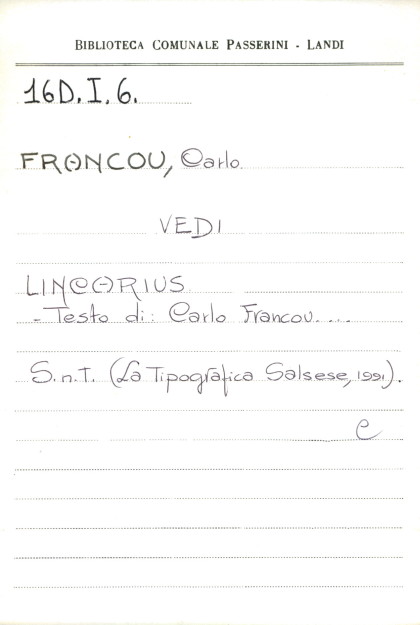 BIBLIOTECA COMUNALE PASSERINI - LANDI
16D.I.6.
FRANCOU, Carlo
VEDI
LINCARIUS
- Testo di: Carlo Francou....
S.n.t. (La Tipografica Salsese, 1991).
e